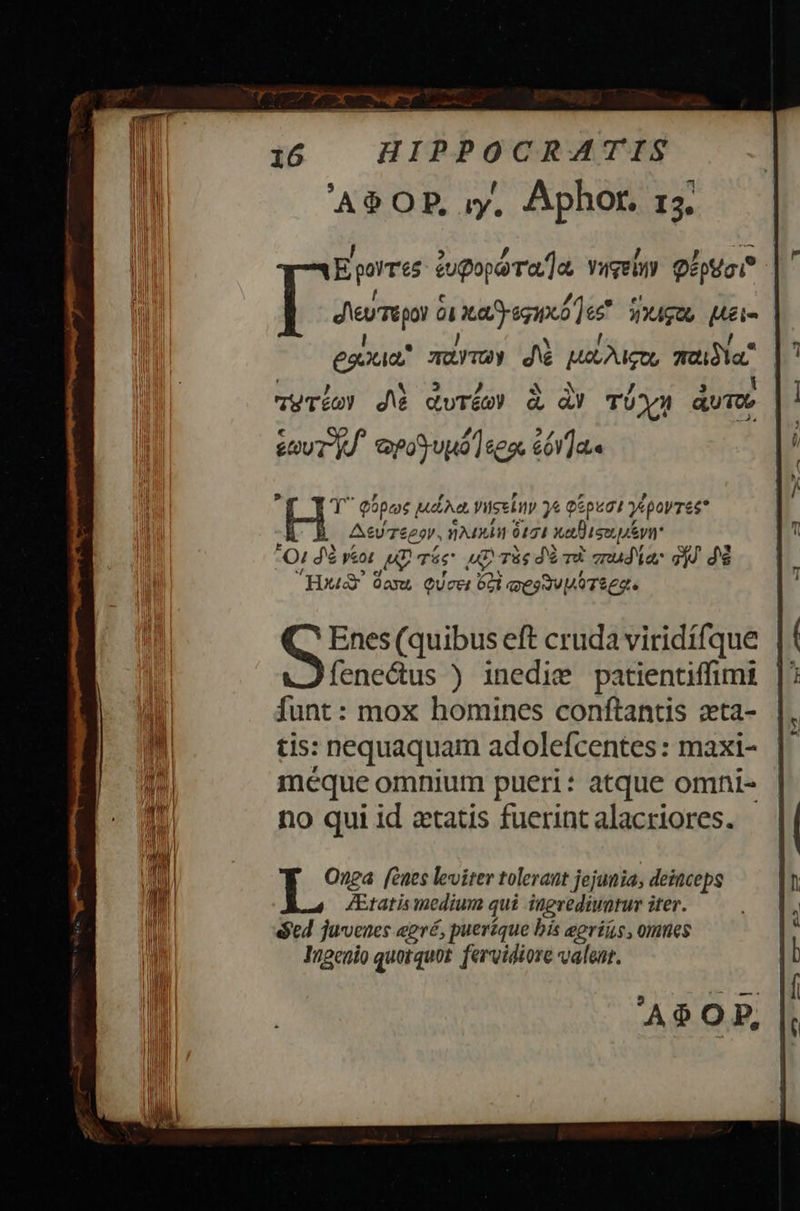 16 HIPPOCRATIS
ἈΦΟΡ. ιγʹ. Aphor. 13.
ΓΕροντες ἐυφορώταlα νηςείην φέρȣσι·
δεύτερον ὁι καθεςηκόlες· ἥκιςα μει-
ράκια· πάντων δὲ μάλιςα παιδία·
τȣτέων δὲ ἀυτέων ἃ ἂν τύχη ἀυτὰ
ἑωυτῶν προθυμόlερα ἐόνlα.
ἨΫφόρως μάλα νηςείην γε φέρȣσι γέροντες·
Δεύτερον, ἡλικίη ὅισι καθιςαμένη·
Οἱ δὲ νέοι μζ τές· μζ τὰς δὲ τὰ παιδία· τῶν δὲ
Ἥκιςθʼ ὅασα φύσει ὅςι προθυμότερα.
SEnes (quibus eſt cruda viridíſque
ſenectus ) inediæ patientiſſimi
ſunt: mox homines conſtantis æta-
tis: nequaquam adoleſcentes: maxi-
méque omnium pueri: atque omni-
no qui id ætatis fuerint alacriores.
LOnga ſenes leviter tolerant jejunia, deinceps
Ætatis medium qui ingrediuntur iter.
Sed juvenes ægré, pueríque his ægriùs, omnes
Ingenio quotquot fervidiore valent.
ἈΦΟΡ.